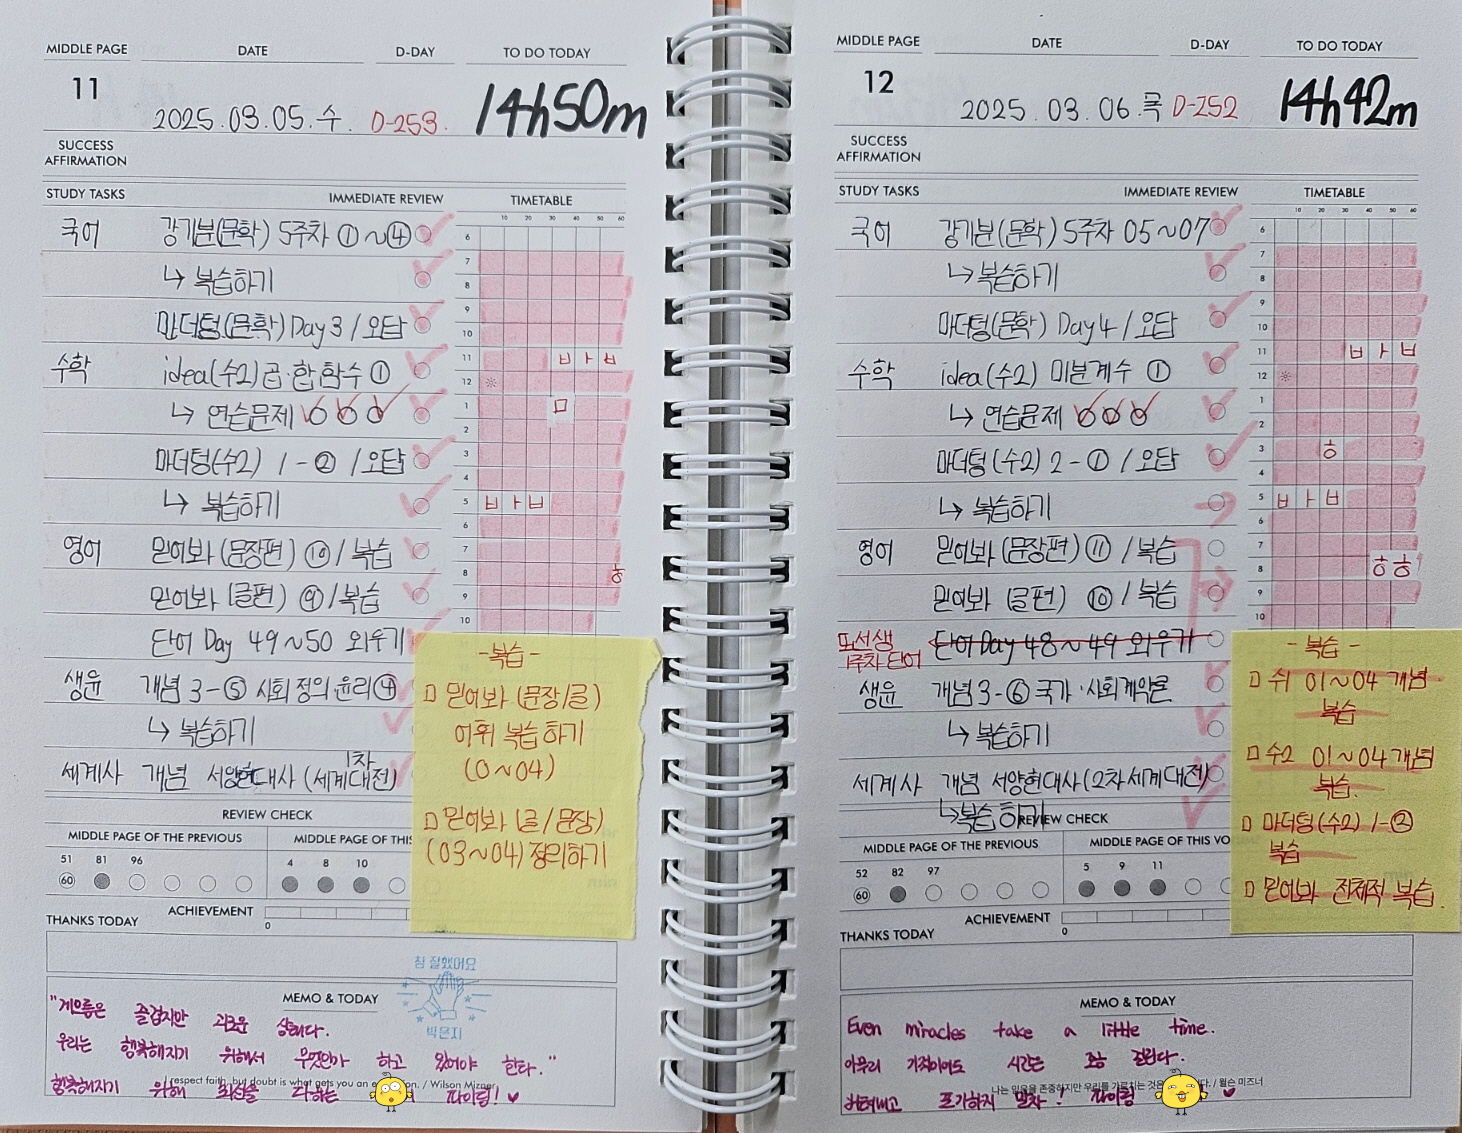 MIDDLE PAGE DATE D-DAY TO DO TODAY
11 2025.03.05.수. D-253. 14h50m
SUCCESS
AFFIRMATION
STUDY TASKS IMMEDIATE REVIEW TIMETABLE
10 20 30 40 50 60
국어 강기분(문학) 5주차 ①~④
↳ 복습하기
마더텅(문학) Day 3 / 오답
수학 idea(수2) 곱·합 함수 ①
↳ 연습문제
마더텅(수2) 1-② / 오답
↳ 복습하기
영어 믿어봐 (문장편) ⑩ / 복습
믿어봐 (글편) ⑨ / 복습
단어 Day 49~50 외우기
생윤 개념 3-⑤ 사회 정의 윤리④
↳ 복습하기
1차
세계사 개념 서양현대사 (세계대전)
6
7
8
9
10
11 ㅂ ㅏ ㅂ
12
1 ㅁ
2
3
4
5 ㅂ ㅏ ㅂ
6
7
8 ㅎ
9
10
- 복습 -
□ 믿어봐 (문장/글)
어휘 복습하기
(0~04)
□ 믿어봐 (글/문장)
(03~04) 정리하기
REVIEW CHECK
MIDDLE PAGE OF THE PREVIOUS MIDDLE PAGE OF THIS
51 81 96 4 8 10
60
ACHIEVEMENT
0
THANKS TODAY
참 잘했어요
박은지
MEMO & TODAY
"게으름은 즐겁지만 괴로운 상태다.
우리는 행복해지기 위해서 무엇인가 하고 있어야 한다."
I respect faith, but doubt is what gets you an / Wilson Mizner
행복해지기 위해 최선을 다하는 파이팅! ♥
MIDDLE PAGE DATE D-DAY TO DO TODAY
12 2025.03.06.목 D-252 14h42m
SUCCESS
AFFIRMATION
STUDY TASKS IMMEDIATE REVIEW TIMETABLE
10 20 30 40 50 60
국어 강기분(문학) 5주차 05~07
↳ 복습하기
마더텅(문학) Day 4 / 오답
수학 idea(수2) 미분계수 ①
↳ 연습문제
마더텅(수2) 2-① / 오답
↳ 복습하기
영어 믿어봐 (문장편) ⑪ / 복습
믿어봐 (글편) ⑩ / 복습
단어 Day 48~49 외우기
1주차 단어
생윤 개념 3-⑥ 국가·사회계약론
↳ 복습하기
세계사 개념 서양현대사 (2차 세계대전)
↳ 복습하기
6
7
8
9
10
11 ㅂ ㅏ ㅂ
12
1
2
3 ㅎ
4
5 ㅂ ㅏ ㅂ
6
7
8 ㅎ ㅎ
9
10
- 복습 -
□ 쉬 01~04 개념
복습
□ 수2 01~04 개념
복습.
□ 마더텅(수2) 1-②
복습
□ 믿어봐 전체적 복습.
REVIEW CHECK
MIDDLE PAGE OF THE PREVIOUS MIDDLE PAGE OF THIS VO
52 82 97 5 9 11
60
ACHIEVEMENT
0
THANKS TODAY
MEMO & TODAY
Even miracles take a little time.
아무리 기적이어도 시간은 조금 걸린다.
나는 믿음을 존중하지만 우리를 가르치는 것은 다. / 윌슨 미즈너
포기하지 말자! 파이팅 ♥